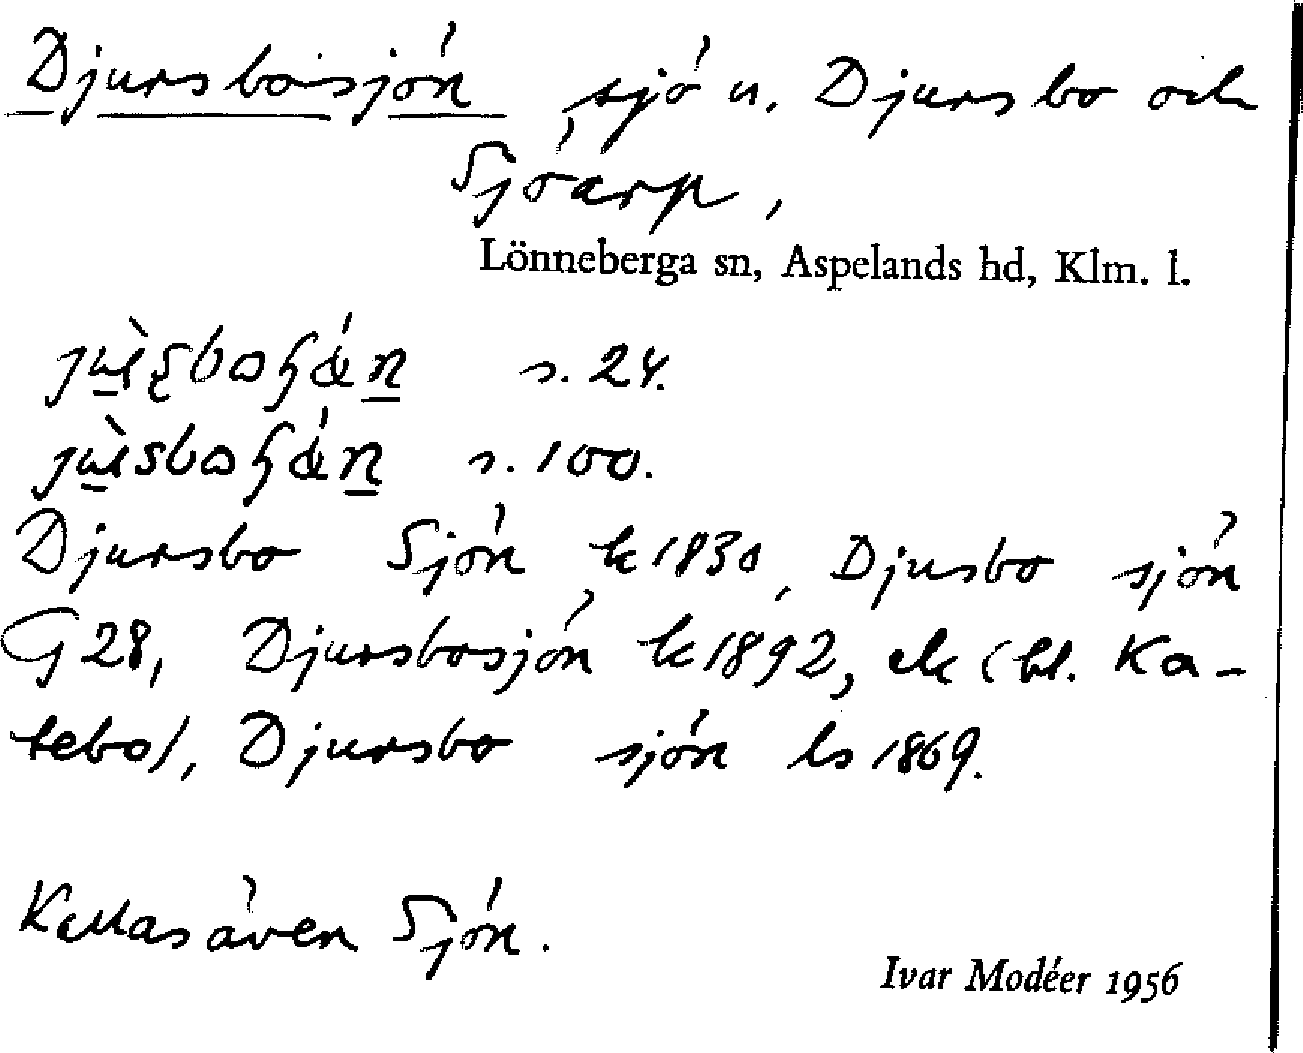 Djursbosjön, sjö n. Djursbo och
Sjöarp,
Lönneberga sn, Aspelands hd, Klm. l.
s. 24.
s. 100.
Djursbo Sjön k 1830, Djusbo sjön
G 28, Djursbosjön k 1892, ek (bl. Ka-
tebo), Djursbo sjön ls 1869.
Kallas även Sjön.
Ivar Modéer 1956